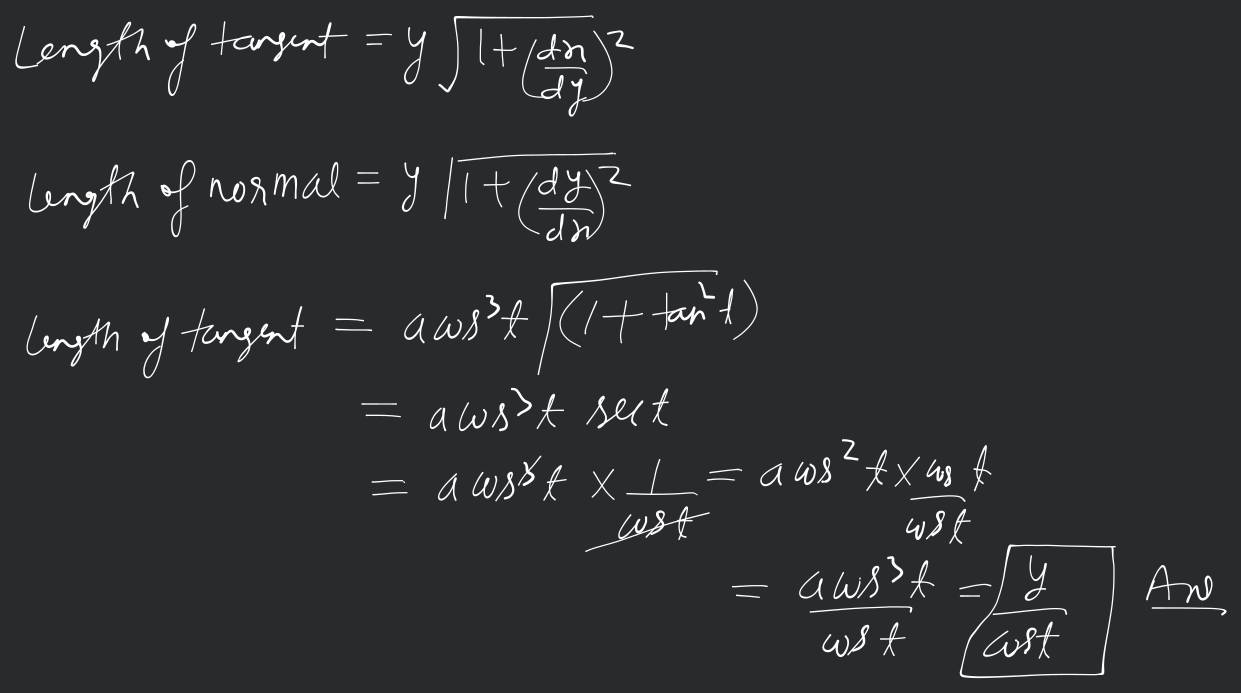 Length of tangent = y √(1+(dx/dy)²)
Length of normal = y √(1+(dy/dx)²)
Length of tangent = a cos³t √(1+tan²t)
= a cos³t sect
= a cos³t × 1/cost = a cos²t × cos t/cost
= a cos³t/cost = y/cost Ans